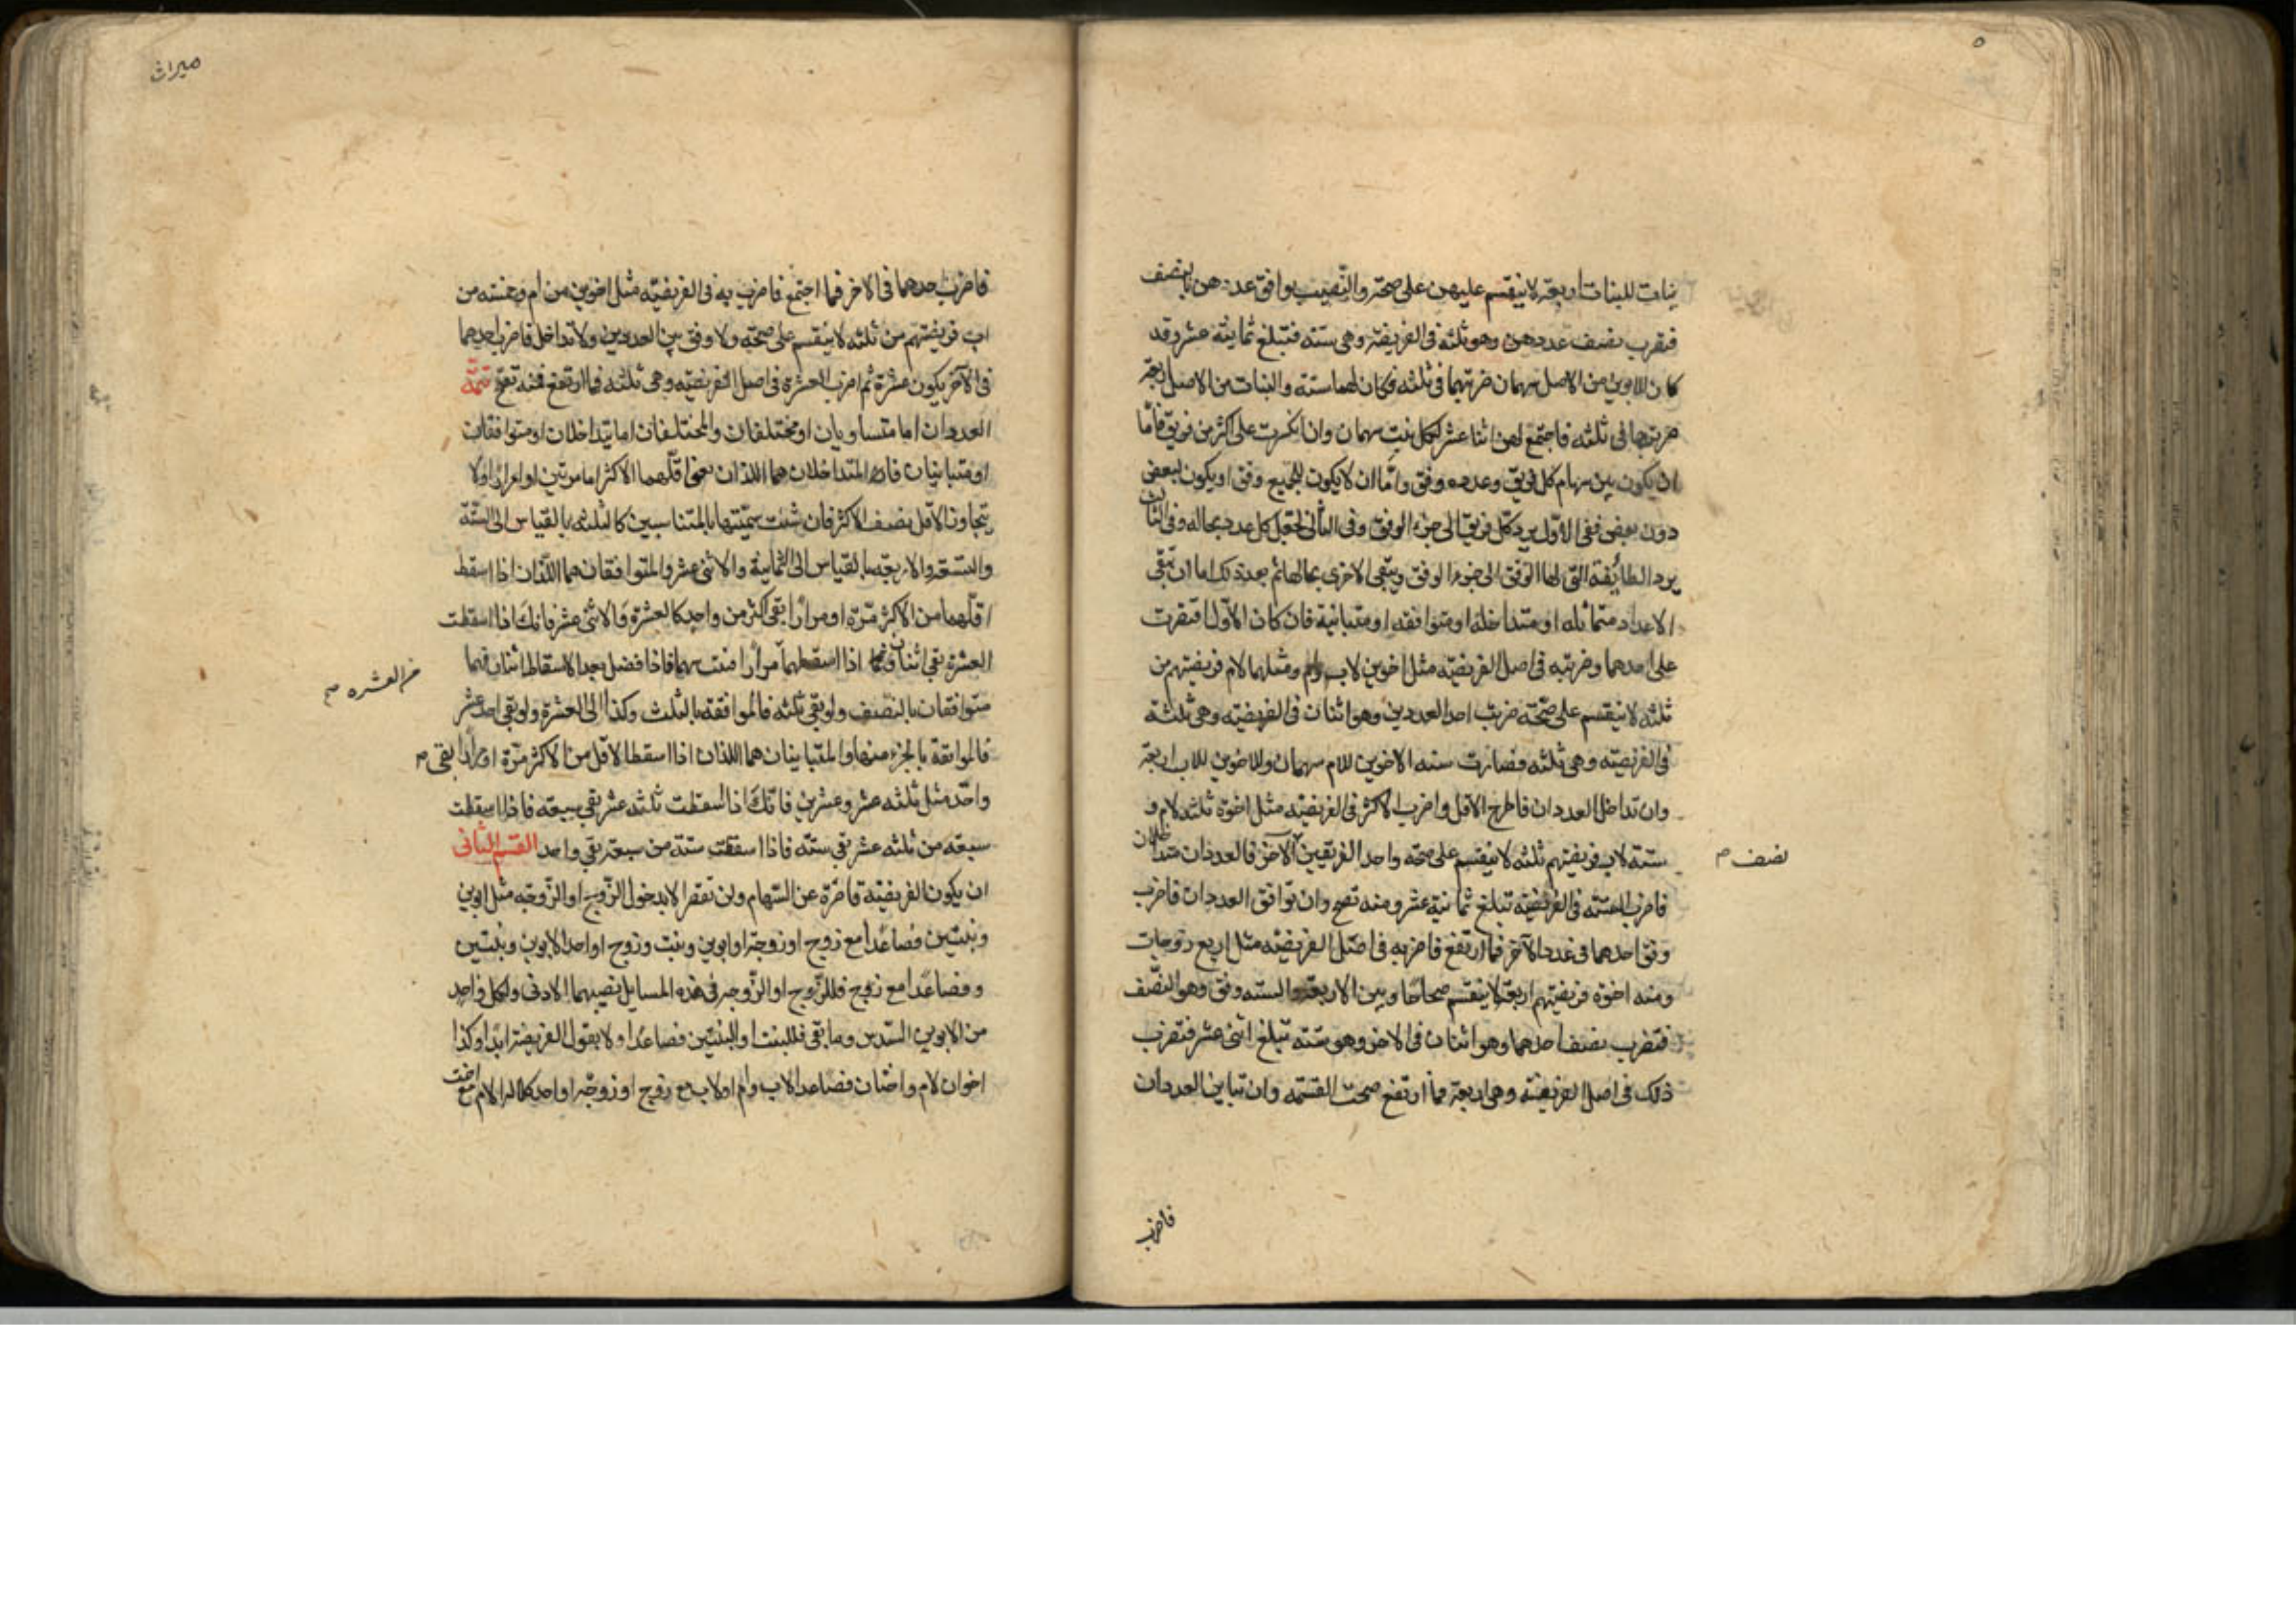 بنات للبنات اربعة لا ينقسم عليهن على صحة والنصيب يوافق عددهن بالنصف
فتضرب نصف عددهن وهو ثلثه فى الفريضة وهى ستة فتبلغ ثمانية عشر وقد
كان للابوين من الاصل سهمان ضربتهما فى ثلثه فكان لهما ستة والبنات من الاصل اربعة
ضربتها فى ثلثه فاجتمع لهن اثنا عشر لكل بنت سهمان وان انكسرت على اكثر من فريق فامّا
ان يكون بين سهام كل فريق وعدده وفق وامّا ان لا يكون للجميع وفق او يكون لبعض
دون بعض ففى الاوّل يرد كل فريق الى جزء الوفق وفى الثانى تجعل كل عدد بحاله وفى الثالث
يرد الطائفة التى لها الوفق الى جزء الوفق ويبقى الاخرى بحالها ثم بعد ذلك اما ان تبقى
الاعداد متماثله او متداخلة او متوافقه او متباينة فان كان الاوّل اقتصرت
على احدهما وضربته فى اصل الفريضة مثل اخوين لاب وام ومثلهما لام فريضتهم من
ثلثه لا ينقسم على صحّته ضربت احد العددين وهو اثنان فى الفريضه وهى ثلثة
فى الفريضه وهى ثلثه فصارت سته الاخوين للام سهمان وللاخوين للاب اربعة
وان تداخل العددان فاطرح الاقل واضرب الاكثر فى الفريضة مثل اخوة ثلثه لام و
ستة لاب فريضتهم ثلثه لا ينقسم على صحه واحد الفريقين الآخر فالعددان متداخلان
نصف م
فاضرب الستّه فى الفريضة تبلغ ثمانية عشر ومنه تصح وان توافق العددان فاضرب
وفق احدهما فى عدد الآخر فما ارتفع فاضربه فى اصل الفريضه مثل اربع زوجات
وسته اخوة فريضتهم اربعة لا ينقسم صحاحا وبين الاربعة والسته وفق وهو النصّف
فتضرب نصف احدهما وهو اثنان فى الاخر وهو ستّه تبلغ اثنى عشر فتضرب
ذلك فى اصل الفريضة وهى اربعة فما ارتفع صحت القسمه وان تباين العددان
فاضرب
ميراث
فاضرب احدهما فى الاخر فما اجتمع فاضرب به فى الفريضّه مثل اخوين من ام وخمسه من
اب فريضتهم من ثلثه لا ينقسم على صحّه ولا وفق بين العددين ولا تداخل فاضرب احدهما
فى الآخر يكون عشرة ثم اضرب العشرة فى اصل الفريضّه وهى ثلثه فما ارتفع فمنه تصح تتمّة
العددان اما متساويان او مختلفان والمختلفان اما يتداخلان او متوافقان
او متباينان فان المتداخلان هما اللذان يفنى اقلّهما الاكثر اما مرتين او مرارا ولا
يتجاوز الاقل نصف الاكثر فان شئت سمّيتها بالمتناسبين كالثلثه بالقياس الى الستّة
والتسعة والاربعة بالقياس الى الثمانية والاثنى عشر والمتوافقان هما اللّذان اذا اسقط
اقلّهما من الاكثر مرّة او مرارا بقى اكثر من واحد كالعشرة والاثنى عشر فانك اذا اسقطت
العشرة بقى اثنان فاذا اسقطهما مرارا فنت بهما فاذا فضل بعد الاسقاط اثنان فهما
من العشره صح
متوافقان بالنصّف ولو بقى ثلثه فالموافقه بالثلث وكذا الى العشرة ولو بقى احد عشر
فالموافقة بالجزء منها والمتباينان هما اللذان اذا اسقط الاقل من الاكثر مرّة او مرارا بقى م
واحد مثل ثلثه عشر وعشرين فانّك اذا اسقطت ثلثه عشر بقى سبعه فاذا اسقطت
سبعه من ثلثه عشر بقى ستّه فاذا اسقطت ستة من سبعة بقى واحد القسم الثّانى
ان يكون الفريضة قاصّرة عن السّهام ولن تقصر الا بدخول الزّوج او الزّوجه مثل ابوين
وبنتين فصاعدا مع زوج او زوجة او ابوين وبنت وزوج او احد الابوين وبنتين
وفصاعدا مع زوج فللزّوج او الزّوجة فى هذه المسايل نصيبهما الادنى ولكل واحد
من الابوين السّدس وما بقى فللبنت او البنتين فصاعدا ولا يعول الفريضة ابدا وكذا
اخوان لام واختان فصاعدا لاب وام او لاب مع زوج او زوجة او احد كلالة الام مع اخت